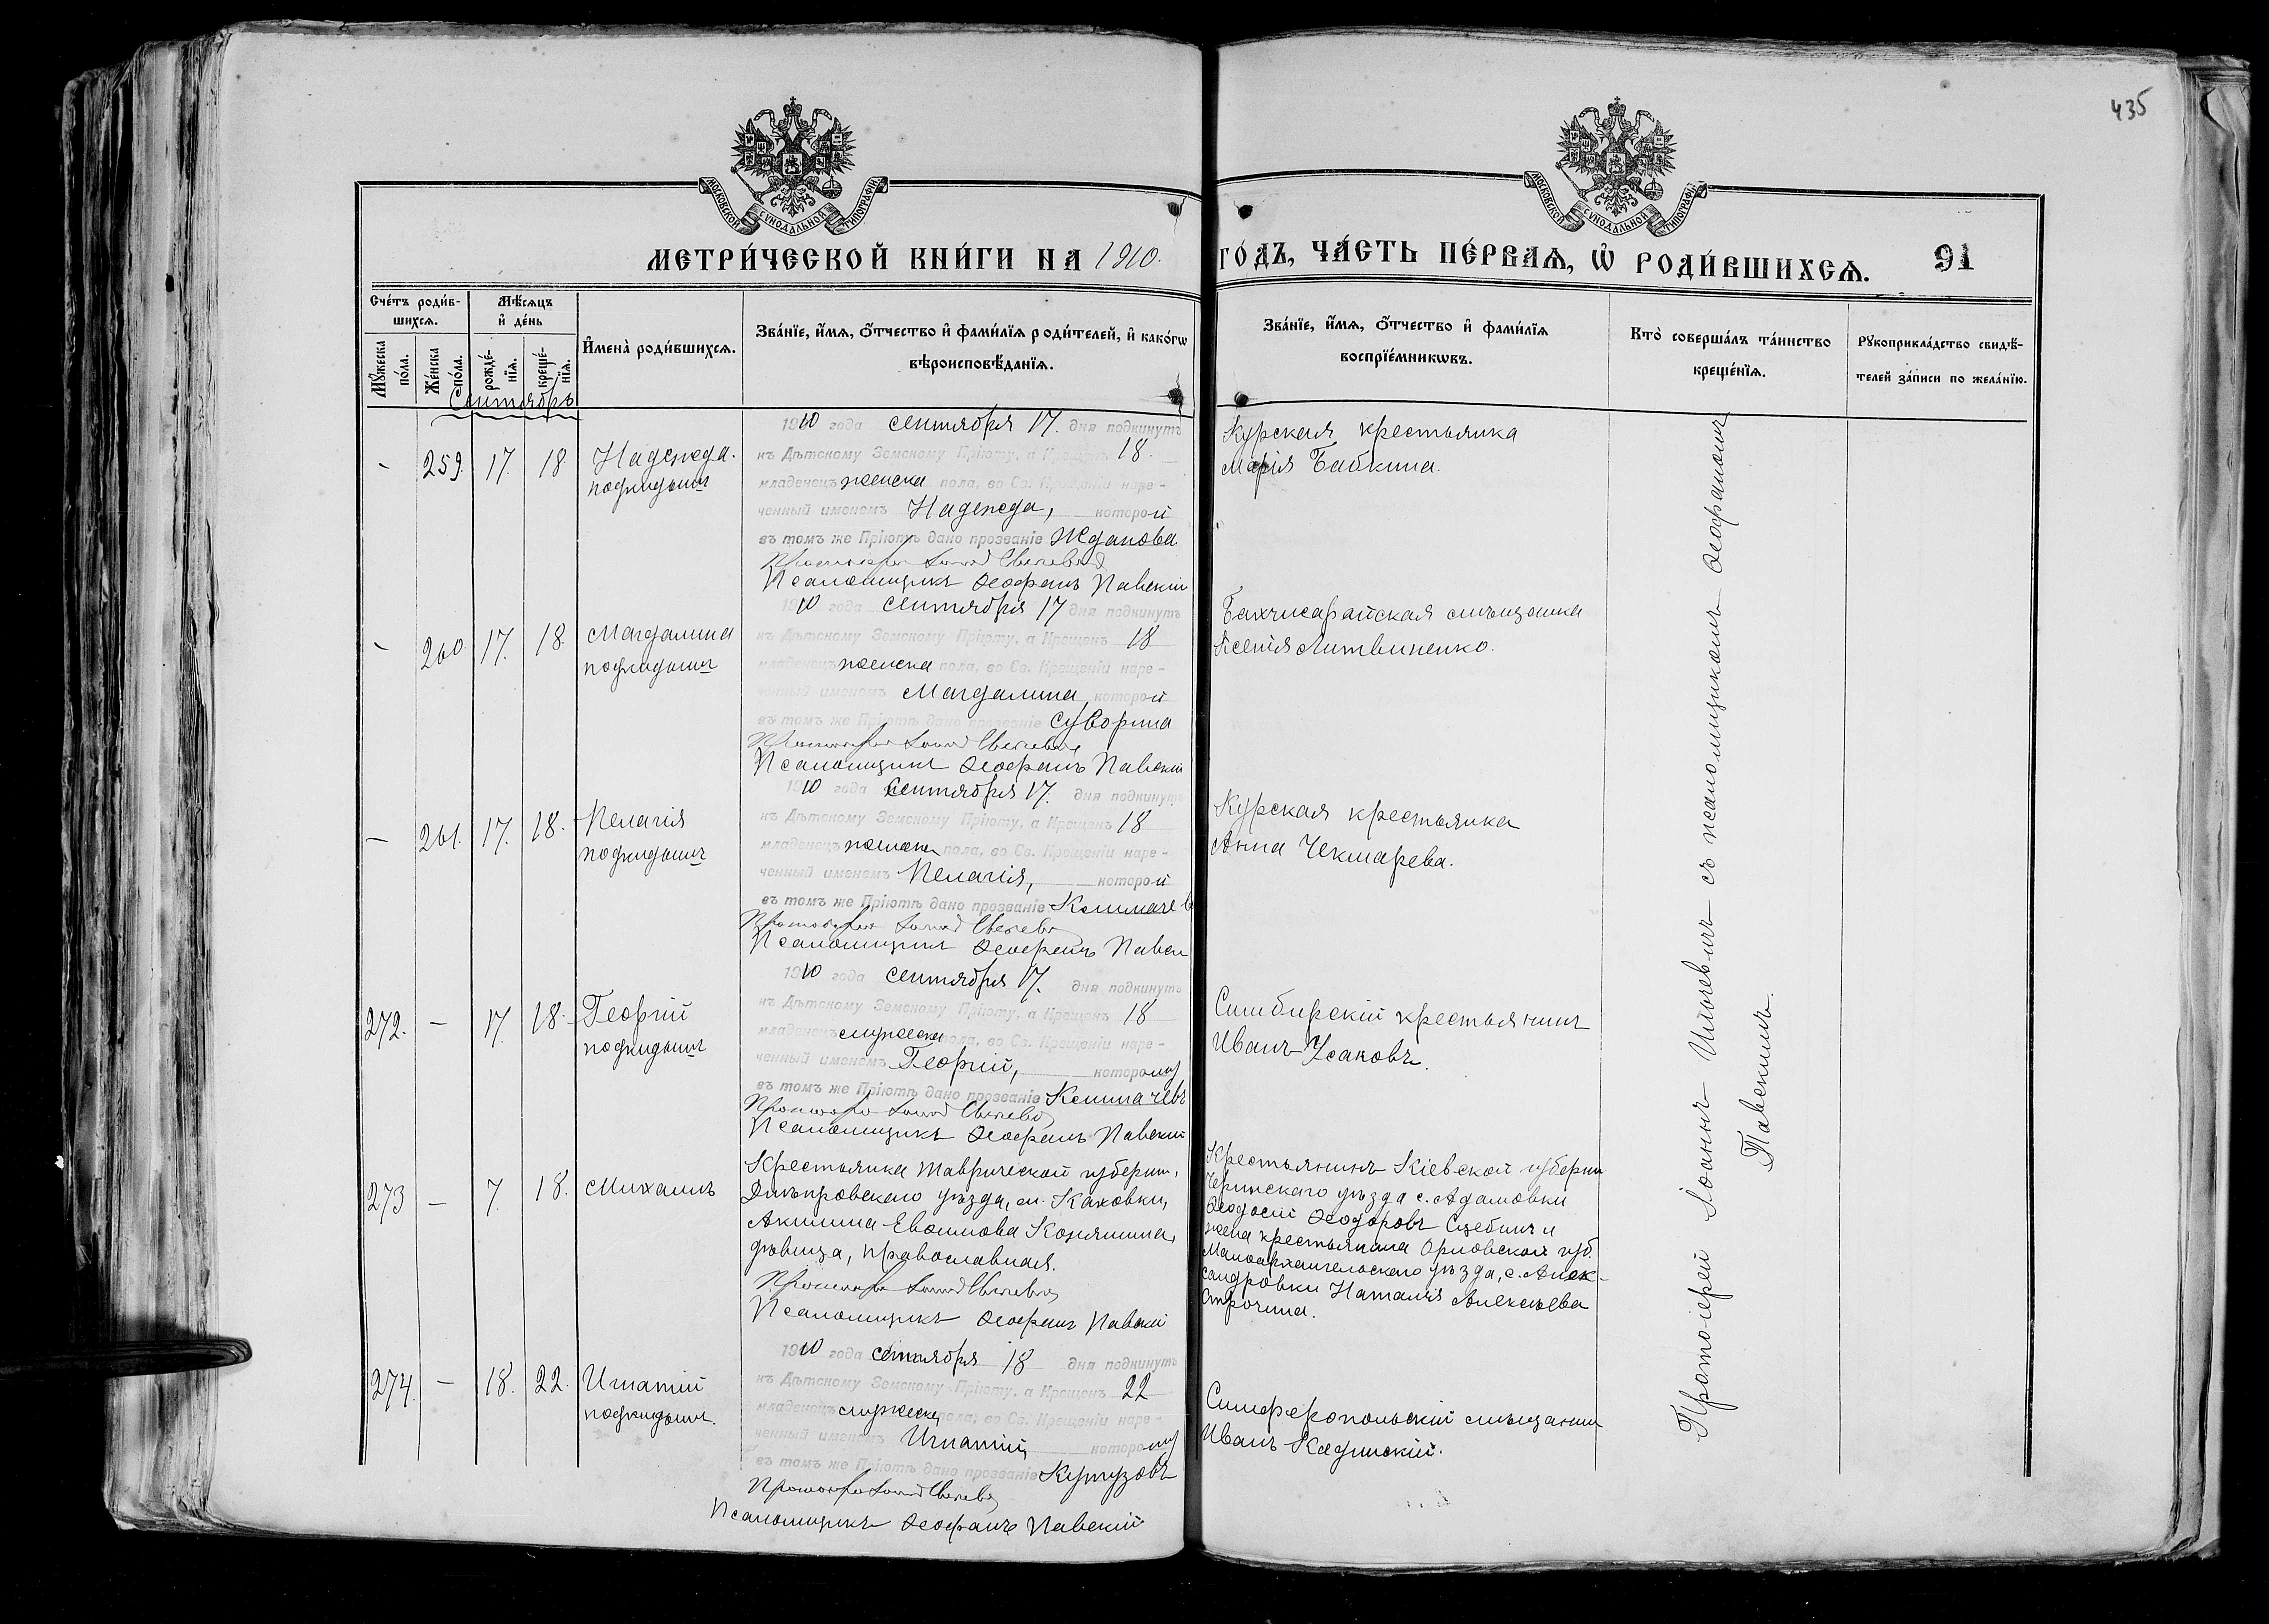 435
МОСКОВСКОЙ СѴНОДАЛЬНОЙ ТИПОГРАФІИ
МОСКОВСКОЙ СѴНОДАЛЬНОЙ ТИПОГРАФІИ
МЕТРИ́ЧЕСКОЙ КНИ́ГИ НА 1910. ГО́ДЪ, ЧА́СТЬ ПЕ́РВАѦ, Ѡ҆ РОДИ́ВШИХСѦ. 91
Сче́тъ роди́в-
шихсѧ.
Мꙋ́жеска по́ла.
Же́нска по́ла.
Мѣ́сѧцъ
и҆ де́нь
рожде́-
нїѧ.
креще́-
нїѧ.
И҆мена̀ роди́вшихсѧ.
Зва́нїе, и҆́мѧ, ѻ҆́тчество и҆ фами́лїѧ роди́телей, и҆ како́гѡ
вѣроисповѣ́данїѧ.
Зва́нїе, и҆́мѧ, ѻ҆́тчество и҆ фами́лїѧ
воспрїе́мникѡвъ.
Кто̀ соверша́лъ та́инство
креще́нїѧ.
Рꙋкоприкла́дство свидѣ́-
телей за́писи по жела́нїю.
Сентябрь
- 259. 17. 18 Надежда.
подкидыш
1910 года сентября 17. дня подкинутъ
къ Дѣтскому Земскому Пріюту, а Крещенъ 18.
младенецъ женска пола, во Св. Крещеніи наре-
ченный именемъ Надежда, которой
въ томъ же Пріютѣ дано прозваніе Жданова
Протоіерей
Псаломщикъ Ѳеофанъ Павскій
Курская крестьянка
Марія Бабкина.
- 260. 17. 18 Магдалина
подкидыш
1910 года сентября 17 дня подкинутъ
къ Дѣтскому Земскому Пріюту, а Крещенъ 18
младенецъ женска пола, во Св. Крещеніи наре-
ченный именемъ Магдалина, которой
въ томъ же Пріютѣ дано прозваніе Суворина
Протоіерей
Псаломщикъ Ѳеофанъ Павскій
Бахчисарайская мѣщанка
Ксенія Литвиненко.
- 261. 17. 18. Пелагія
подкидыш
1910 года Сентября 17. дня подкинутъ
къ Дѣтскому Земскому Пріюту, а Крещенъ 18
младенецъ женска пола, во Св. Крещеніи наре-
ченный именемъ Пелагія, которой
въ томъ же Пріютѣ дано прозваніе
Протоіерей
Псаломщикъ Ѳеофанъ Павск
Курская крестьянка
Анна Чекмарева.
272. - 17 18. Георгій
подкидыш
1910 года сентября 17. дня подкинутъ
къ Дѣтскому Земскому Пріюту, а Крещенъ 18
младенецъ мужска пола, во Св. Крещеніи наре-
ченный именемъ Георгій, которому
въ томъ же Пріютѣ дано прозваніе
Протоіерей
Псаломщикъ Ѳеофанъ Павскій
Симбирскій крестьянинъ
Иванъ Усаковъ.
273 - 7. 18. Михаилъ
Крестьянка Таврической губерніи,
Днѣпровскаго уѣзда, м. Каховки,
Акилина Евфимова
дѣвица, православная.
Протоіерей
Псаломщикъ Ѳеофанъ Павскій
Крестьянинъ Кіевской губерніи
уѣзда с. Адамовки
Ѳеодосій Ѳеодоровъ и
жена крестьянина Орловской губ.
Малоархангельскаго уѣзда, с. Алек-
сандровки Наталія Алексѣева
Строчина.
274. - 18. 22. Игнатій
подкидыш.
1910 года сентября 18 дня подкинутъ
къ Дѣтскому Земскому Пріюту, а Крещенъ 22
младенецъ мужска пола, во Св. Крещеніи наре-
ченный именемъ Игнатій, которому
въ томъ же Пріютѣ дано прозваніе Кутузовъ
Протоіерей
Псаломщикъ Ѳеофанъ Павскій
Симферопольскій мѣщанинъ
Иванъ Кадинскій.
Протоіерей Іоаннъ съ псаломщикомъ Ѳеофаномъ
Павскимъ.